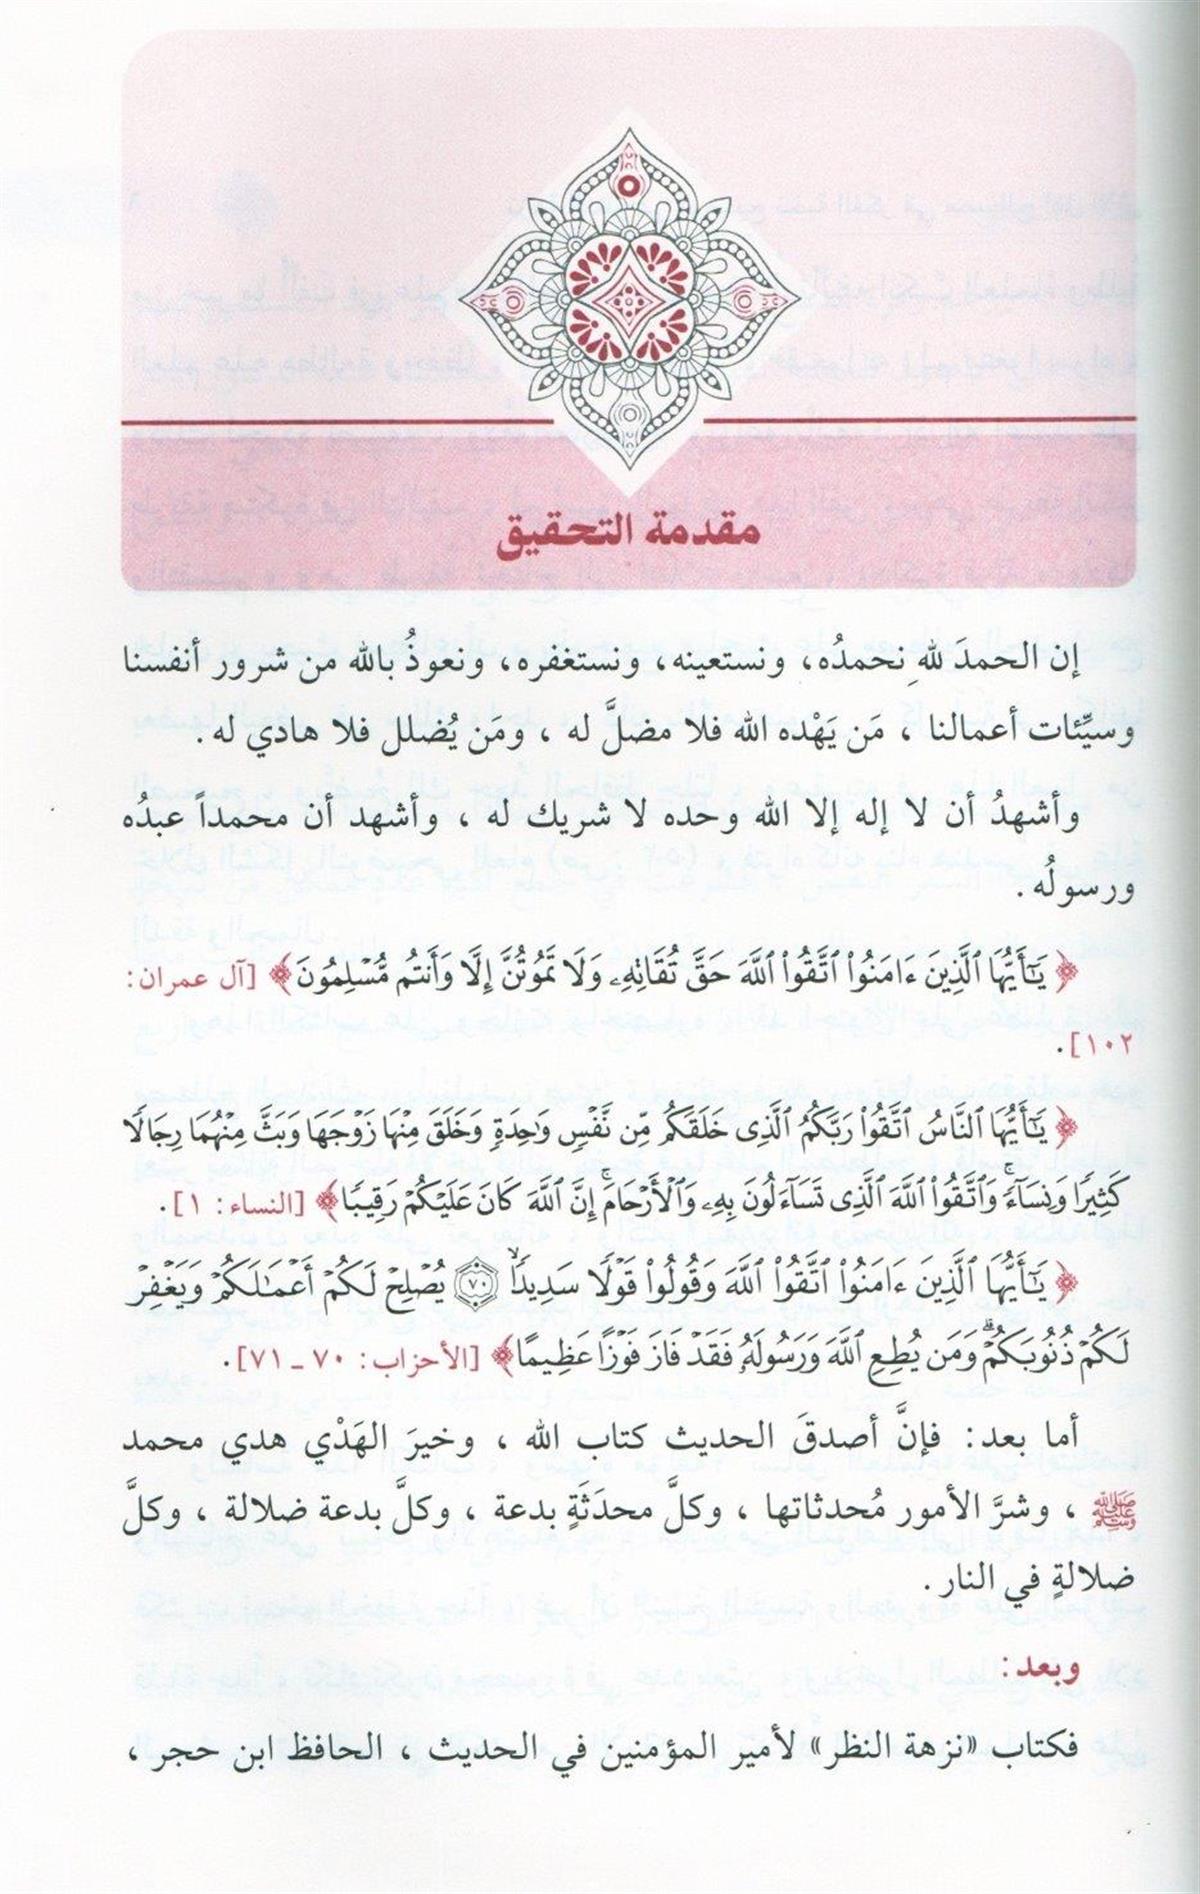 مقدمة التحقيق
إن الحمدَ للهِ نحمدُه، ونستعينه، ونستغفره، ونعوذُ بالله من شرور أنفسنا
وسيِّئات أعمالنا ، مَن يَهْده الله فلا مضلَّ له ، ومَن يُضلل فلا هادي له .
وأشهدُ أن لا إله إلا الله وحده لا شريك له ، وأشهد أن محمداً عبدُه
ورسولُه .
﴿ يَـٰٓأَيُّهَا ٱلَّذِينَ ءَامَنُوا۟ ٱتَّقُوا۟ ٱللَّهَ حَقَّ تُقَاتِهِۦ وَلَا تَمُوتُنَّ إِلَّا وَأَنتُم مُّسْلِمُونَ﴾ [آل عمران:
١٠٢] .
﴿ يَـٰٓأَيُّهَا ٱلنَّاسُ ٱتَّقُوا۟ رَبَّكُمُ ٱلَّذِى خَلَقَكُم مِّن نَّفْسٍ وَٰحِدَةٍ وَخَلَقَ مِنْهَا زَوْجَهَا وَبَثَّ مِنْهُمَا رِجَالًا
كَثِيرًا وَنِسَآءً ۚ وَٱتَّقُوا۟ ٱللَّهَ ٱلَّذِى تَسَآءَلُونَ بِهِۦ وَٱلْأَرْحَامَ ۚ إِنَّ ٱللَّهَ كَانَ عَلَيْكُمْ رَقِيبًا﴾ [النساء: ١] .
﴿ يَـٰٓأَيُّهَا ٱلَّذِينَ ءَامَنُوا۟ ٱتَّقُوا۟ ٱللَّهَ وَقُولُوا۟ قَوْلًا سَدِيدًا ۙ ٧٠ يُصْلِحْ لَكُمْ أَعْمَـٰلَكُمْ وَيَغْفِرْ
لَكُمْ ذُنُوبَكُمْ ۗ وَمَن يُطِعِ ٱللَّهَ وَرَسُولَهُۥ فَقَدْ فَازَ فَوْزًا عَظِيمًا﴾ [الأحزاب: ٧٠ ـ ٧١] .
أما بعد: فإنَّ أصدقَ الحديث كتاب الله ، وخيرَ الهَدْي هدي محمد
ﷺ ، وشرَّ الأمور مُحدثاتها ، وكلَّ محدَثَةٍ بدعة ، وكلَّ بدعة ضلالة ، وكلَّ
ضلالةٍ في النار .
وبعد:
فكتاب «نزهة النظر» لأمير المؤمنين في الحديث ، الحافظ ابن حجر ،